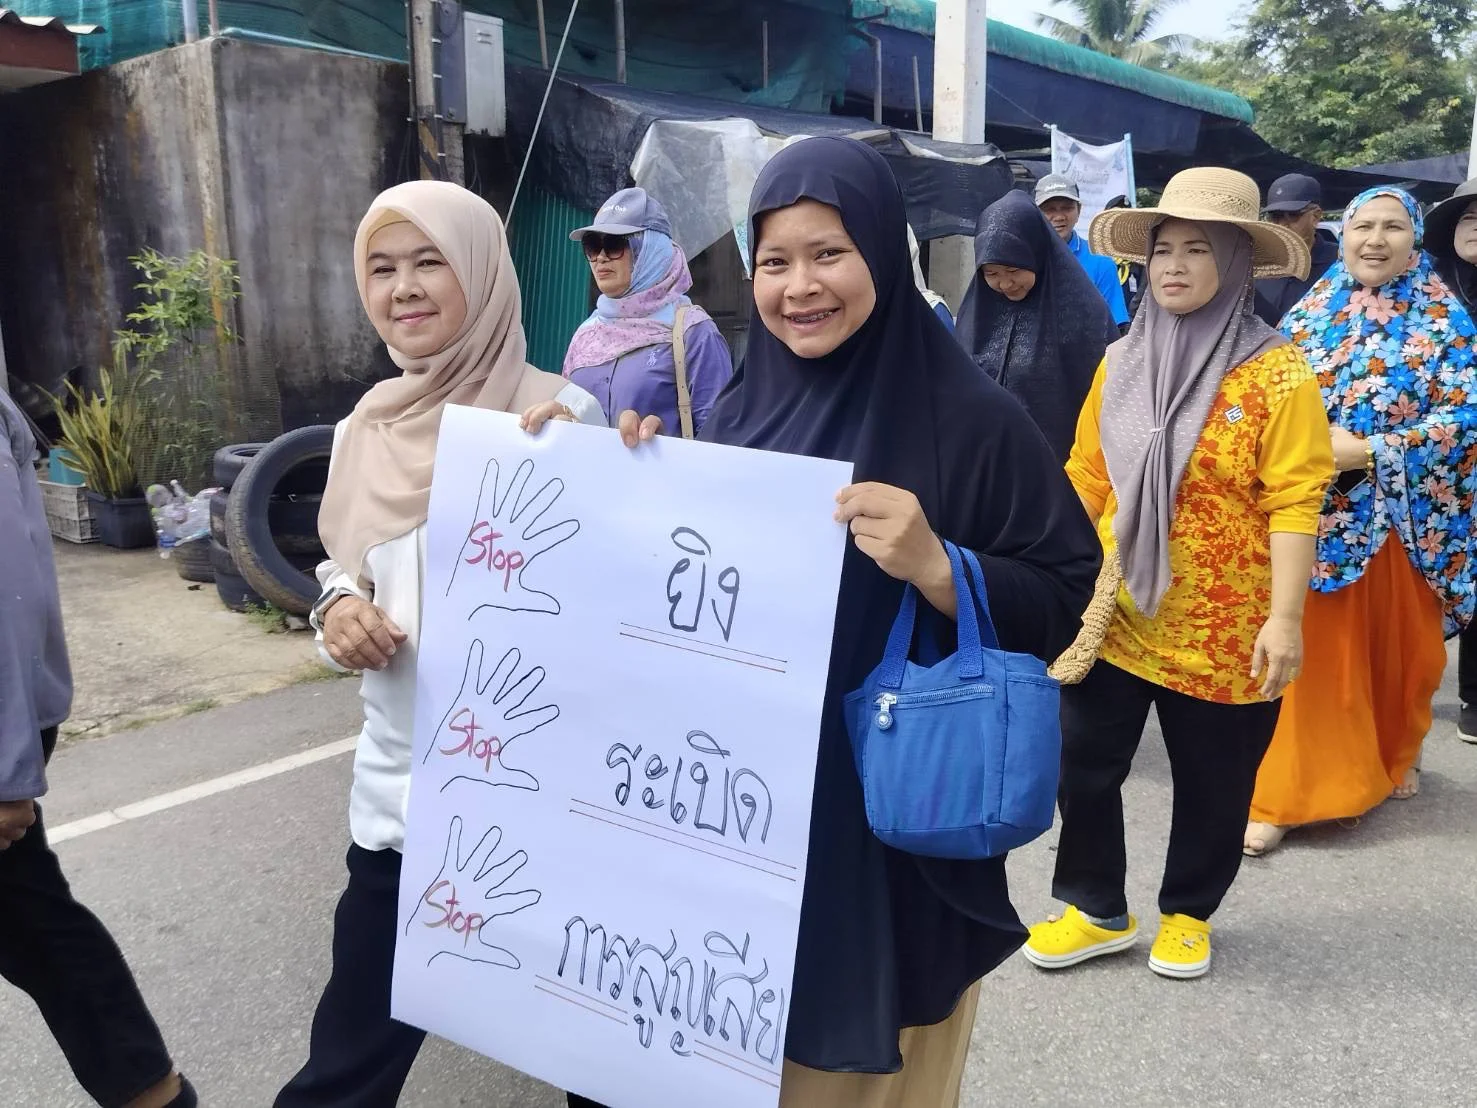 Stop ยิง
Stop ระเบิด
Stop การสูญเสีย